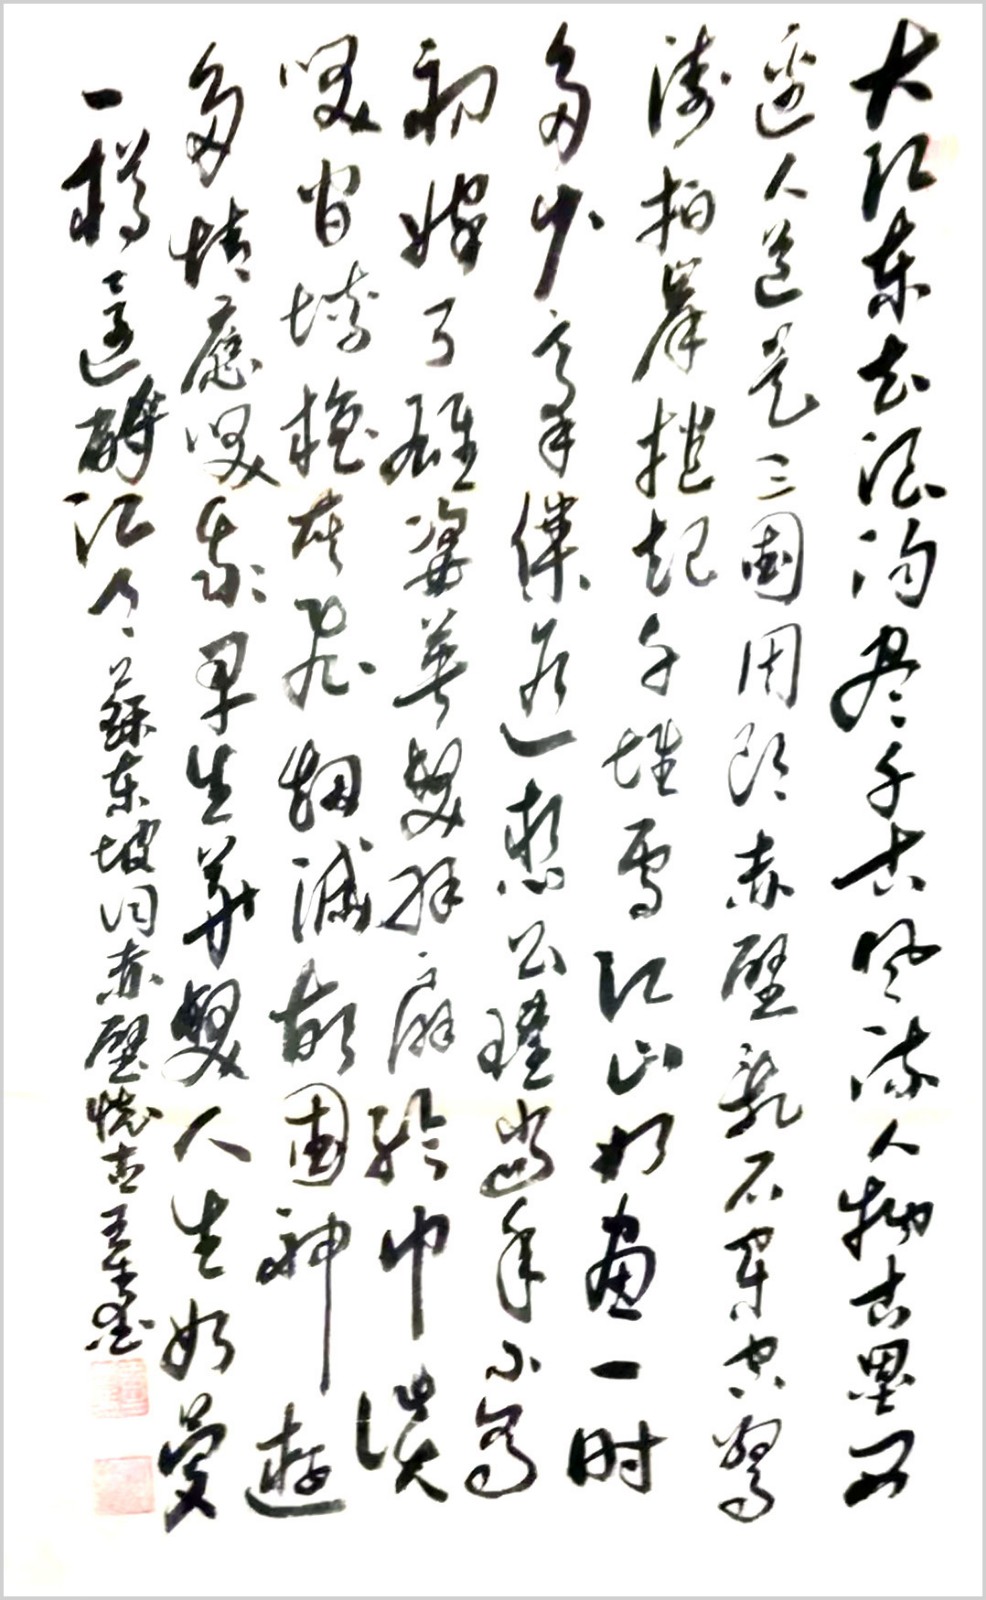 大江东去浪淘尽千古风流人物古垒西
边人道是三国周郎赤壁乱石穿空惊
涛拍岸捲起千堆雪江山如画一时
多少豪杰遥想公瑾当年小乔
初嫁了雄姿英发羽扇纶巾谈
笑间墙橹灰飞烟灭故国神游
多情应笑我早生华发人生如梦
一樽还酹江月苏东坡词赤壁怀古